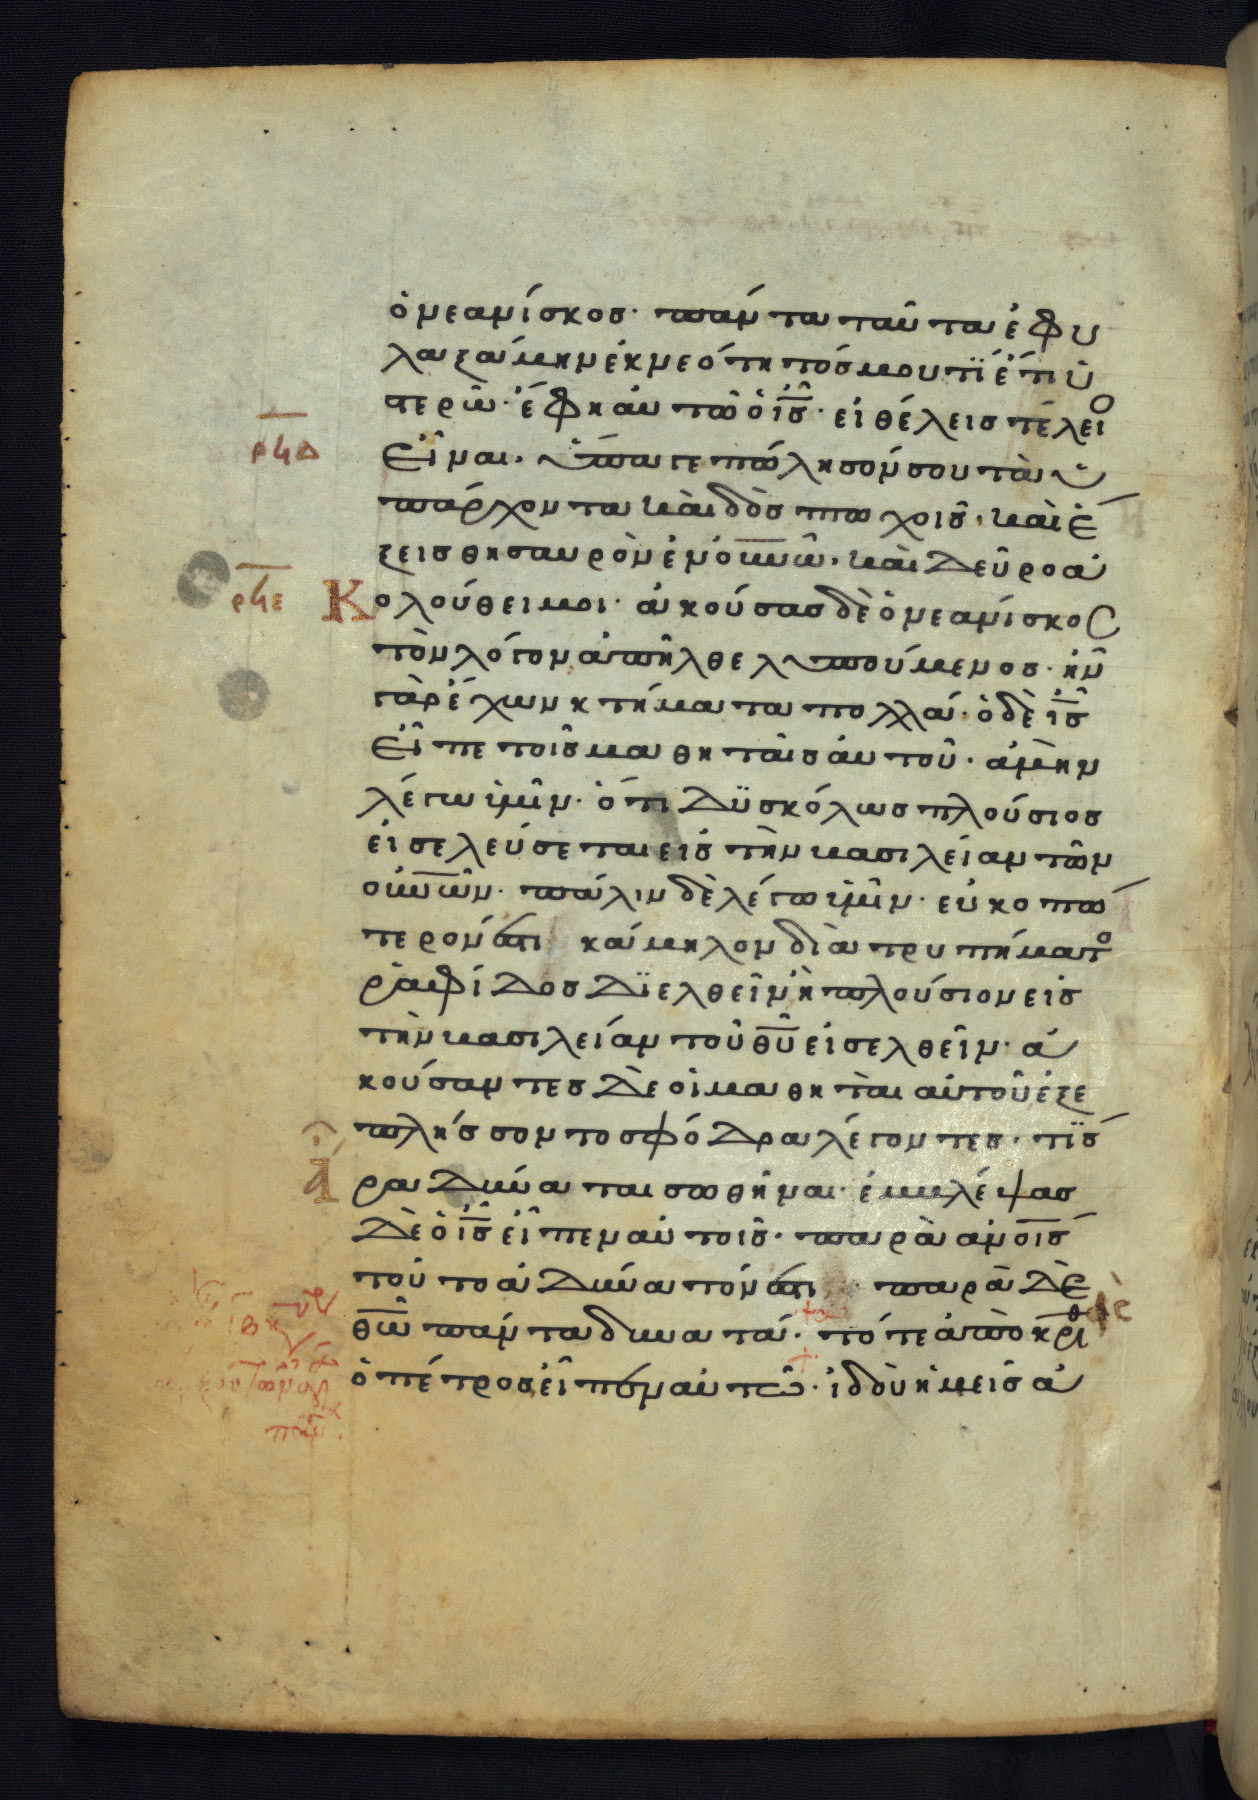 ὁ νεανίσκος· πάντα ταῦτα ἐφυ
λαξάμην ἐκ νεότητός μου τί ἔτι ὑ
στερῶ· ἔφη αὐτῶ ὁ ις· εἰ θέλεις τέλειο
ρϟδ
εἶναι· ὕπαγε πώλησόν σου τὰ ὑ
πάρχοντα καὶ δὸς πτωχοῖς· καὶ ἕ
ξεις θησαυρὸν ἐν ουνω· καὶ δεῦρο ἀ
ρϟε
Κολούθει μοι· ἀκούσας δὲ ὁ νεανίσκος
τὸν λόγον ἀπῆλθε λυπούμενος· ἦν
γὰρ ἔχων κτήματα πολλά· ὁ δὲ ις
εἶπε τοῖς μαθηταῖς αὐτοῦ· ἀμὴν
λέγω ὑμῖν· ὅτι δυσκόλως πλούσιος
εἰσελεύσεται εἰς τὴν βασιλείαν τῶν
ουνων· πάλιν δὲ λέγω ὑμῖν· εὐκοπώ
τερόν ἐστι κάμηλον διὰ τρυπήματο
ραφίδος διελθεῖν ἢ πλούσιον εἰς
τὴν βασιλείαν τοῦ θυ εἰσελθεῖν· ἀ
κούσαντες δὲ οἱ μαθηταὶ αὐτοῦ ἐξε
πλήσσοντο σφόδρα λέγοντες· τίς
ἄρα δύναται σωθῆναι· ἐμβλέψας
δὲ ὁ ις εἶπεν αὐτοῖς· παρὰ ανοις
τοῦτο ἀδύνατόν ἐστι· παρὰ δὲ
θω πάντα δυνατά· τότε ἀποκριθ
ὁ πέτρος εἶπεν αὐτῶ· ἰδοὺ ἡμεῖς ἀ